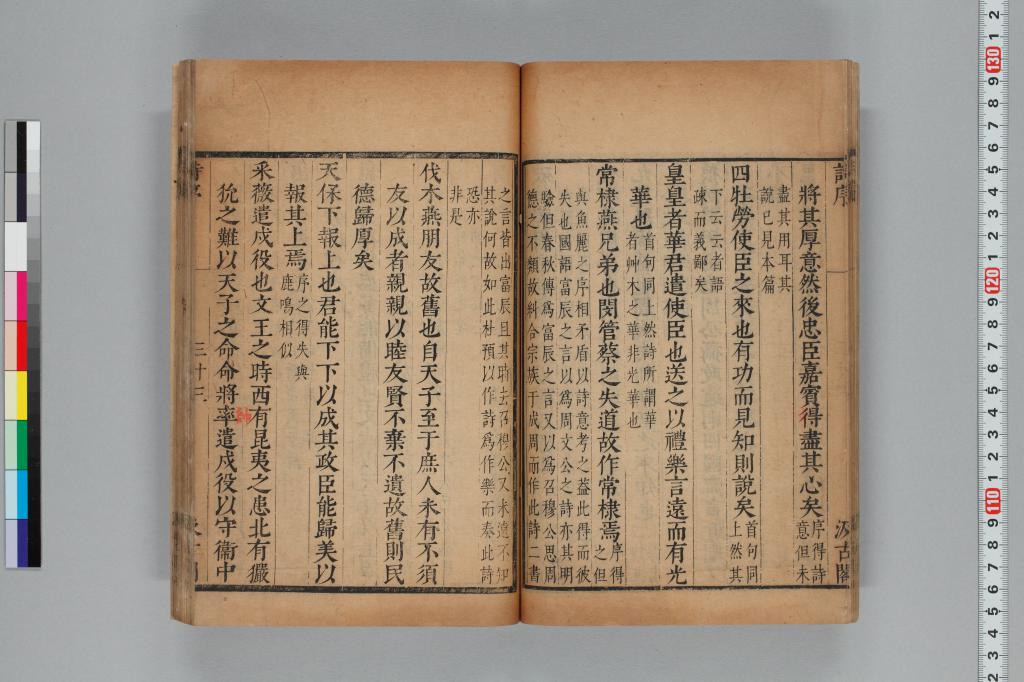 詩序
汲古閣
將其厚意然後忠臣嘉賓得盡其心矣序得詩意但未
盡其用耳其
說已見本篇
四牡勞使臣之來也有功而見知則說矣首句同上然其
下云云者語
疎而義鄙矣
皇皇者華君遣使臣也送之以禮樂言遠而有光
華也首句同上然詩所謂華者艸木之華非光華也
常棣燕兄弟也閔管蔡之失道故作常棣焉序得之但
與魚麗之序相矛盾以詩意考之葢此得而彼
失也國語富辰之言以爲周文公之詩亦其明
驗但春秋傳爲富辰之言又以爲召穆公思周
德之不類故糾合宗族于成周而作此詩二書
之言皆出富辰且其時去召穆公又未遠不知
其說何故如此杜預以作詩爲作樂而奏此詩
恐亦
非是
伐木燕朋友故舊也自天子至于庶人未有不須
友以成者親親以睦友賢不棄不遺故舊則民
德歸厚矣
天保下報上也君能下下以成其政臣能歸美以
報其上焉序之得失與鹿鳴相似
采薇遣戍役也文王之時西有昆夷之患北有玁
狁之難以天子之命命將率遣戍役以守衞中
三十三